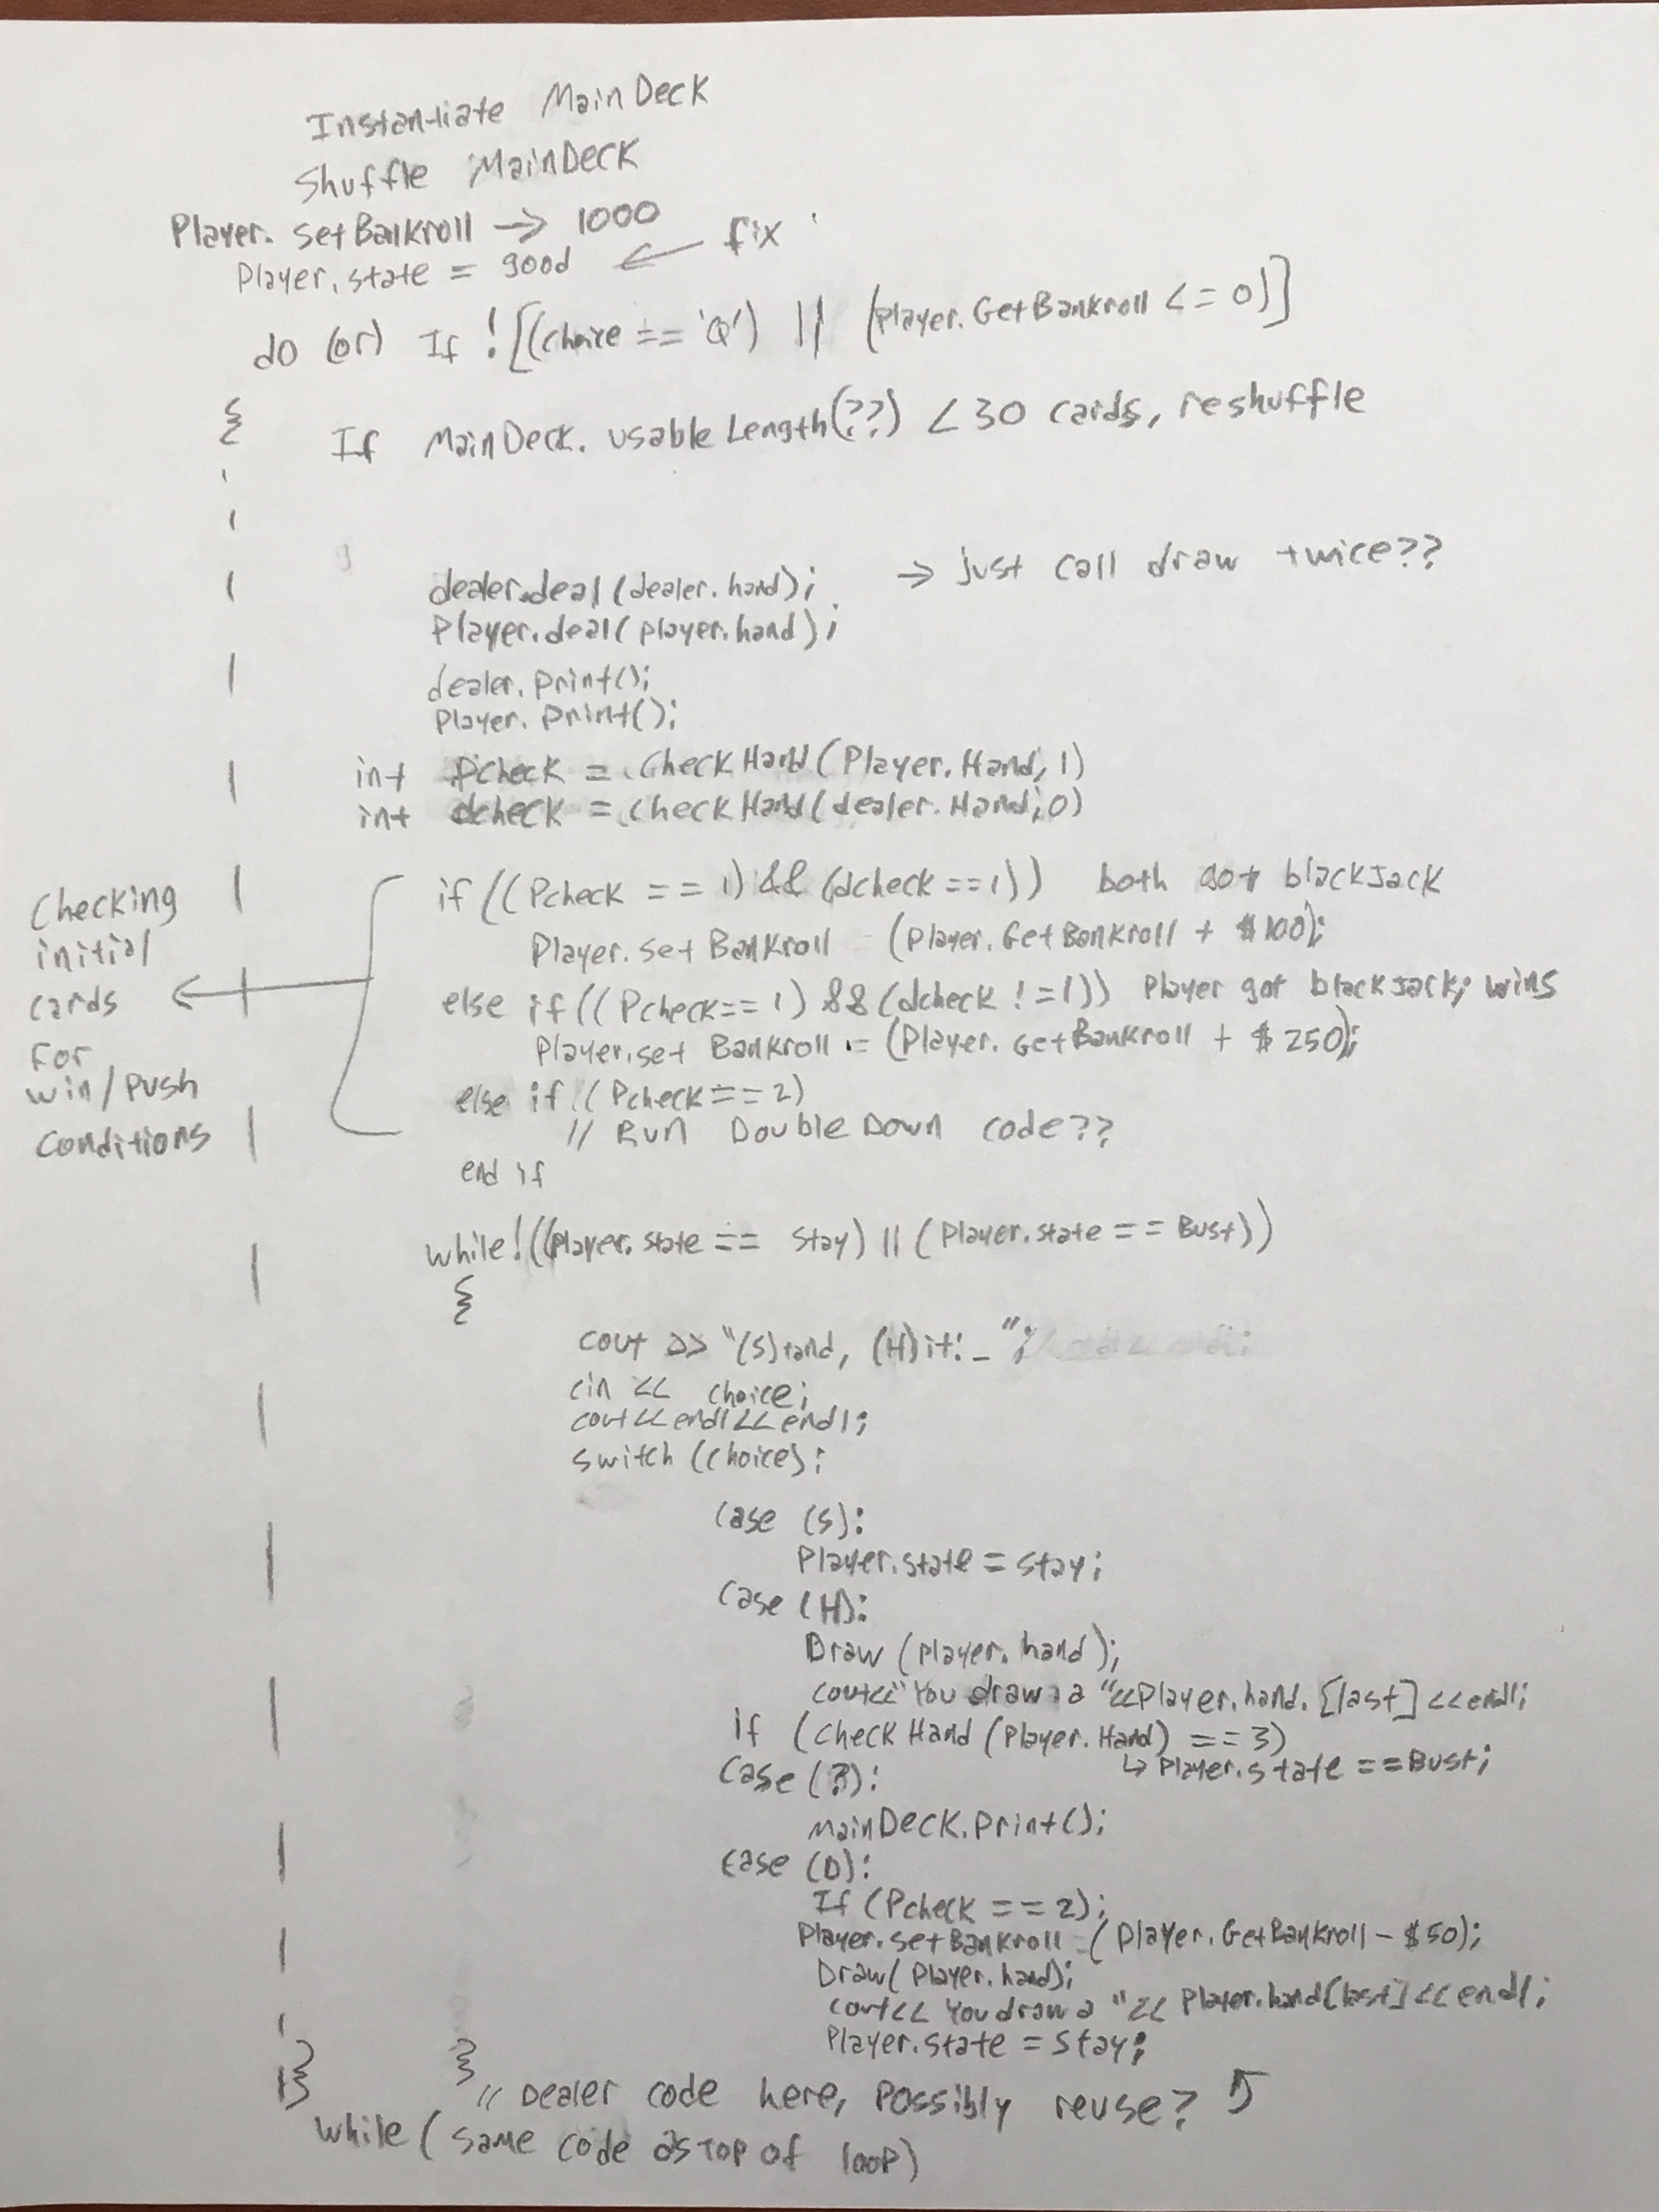 Instantiate MainDeck
Shuffle MainDeck
Player. setBankroll → 1000
Player. state = good ← fix
do (or) If ! [(choice == 'Q') || (player.GetBankroll <= 0)]
{ If MainDeck. usableLength(??) < 30 cards, reshuffle
dealer.deal(dealer.hand); → just call draw twice??
Player.deal(player.hand);
dealer.print();
Player. print();
int Pcheck = CheckHand(Player.Hand, 1)
int dcheck = checkHand(dealer.Hand, 0)
Checking
initial
cards
For
win/push
conditions
if ((Pcheck == 1) && (dcheck==1)) both got blackJack
Player.set Bankroll (Player.GetBankroll + $100);
else if((Pcheck== 1) && (dcheck !=1)) Player got blackJack; wins
Player.set Bankroll = (Player.GetBankroll + $250);
else if (Pcheck==2)
// Run DoubleDown code??
end if
while!((player.state == Stay) || (Player.state == Bust))
{
cout >> "(S)tand, (H)it: _";
cin << choice;
cout<<endl<<endl;
switch (choice):
Case (S):
Player.state = stay;
Case (H):
Draw (player.hand);
cout<<"You draw a "<<Player.hand.[last]<<endl;
if (checkHand(Player.Hand) == 3)
↳ Player.state ==Bust;
Case (?):
mainDeck.print();
case (D):
If (Pcheck == 2);
Player.setBankroll = (Player.GetBankroll - $50);
Draw(Player.hand);
cout<< You draw a "<< Player.hand[last]<<endl;
Player.state = stay;
} }
// Dealer code here, possibly reuse?
while (same code as top of loop)